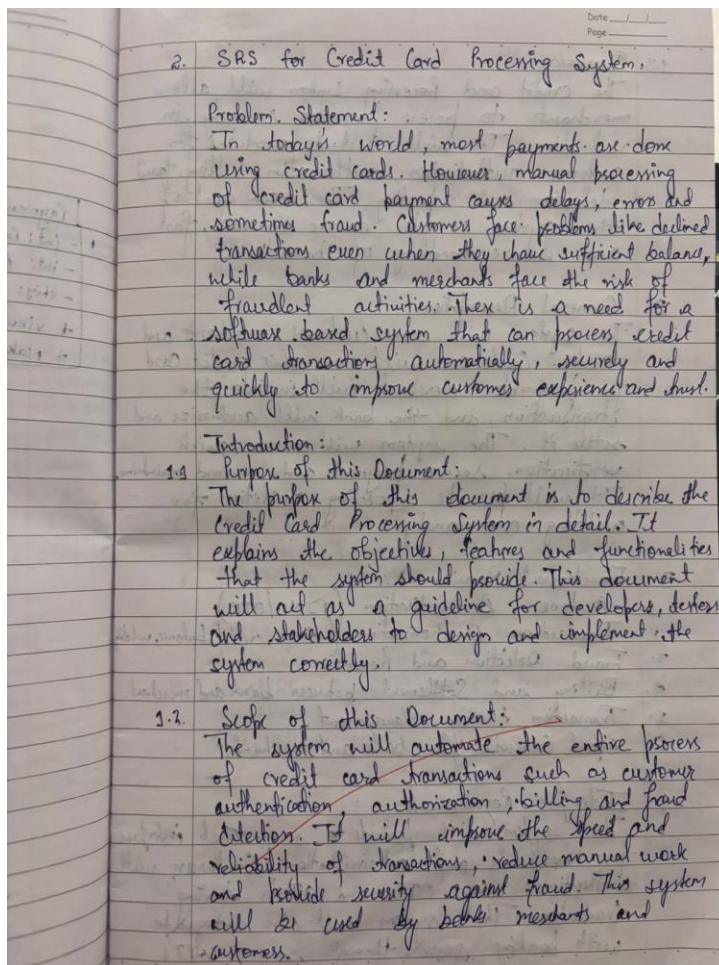 Date __/__/__
Page ______
2. SRS for Credit Card Processing System.
Problem Statement:
In today's world, most payments are done
using credit cards. However, manual processing
of credit card payment causes delays, errors and
sometimes fraud. Customers face problems like declined
transactions even when they have sufficient balance,
while banks and merchants face the risk of
fraudlent activities. There is a need for a
software based system that can process credit
card transactions automatically, securely and
quickly to improve customer experience and trust.
Introduction:
1.1 Purpose of this Document:
The purpose of this document is to describe the
Credit Card Processing System in detail. It
explains the objectives, features and functionalities
that the system should provide. This document
will act as a guideline for developers, testers
and stakeholders to design and implement the
system correctly.
1.2. Scope of this Document:
The system will automate the entire process
of credit card transactions such as customer
authentication, authorization, billing, and fraud
detection. It will improve the speed and
reliability of transactions, reduce manual work
and provide security against fraud. This system
will be used by banks merchants and
customers.